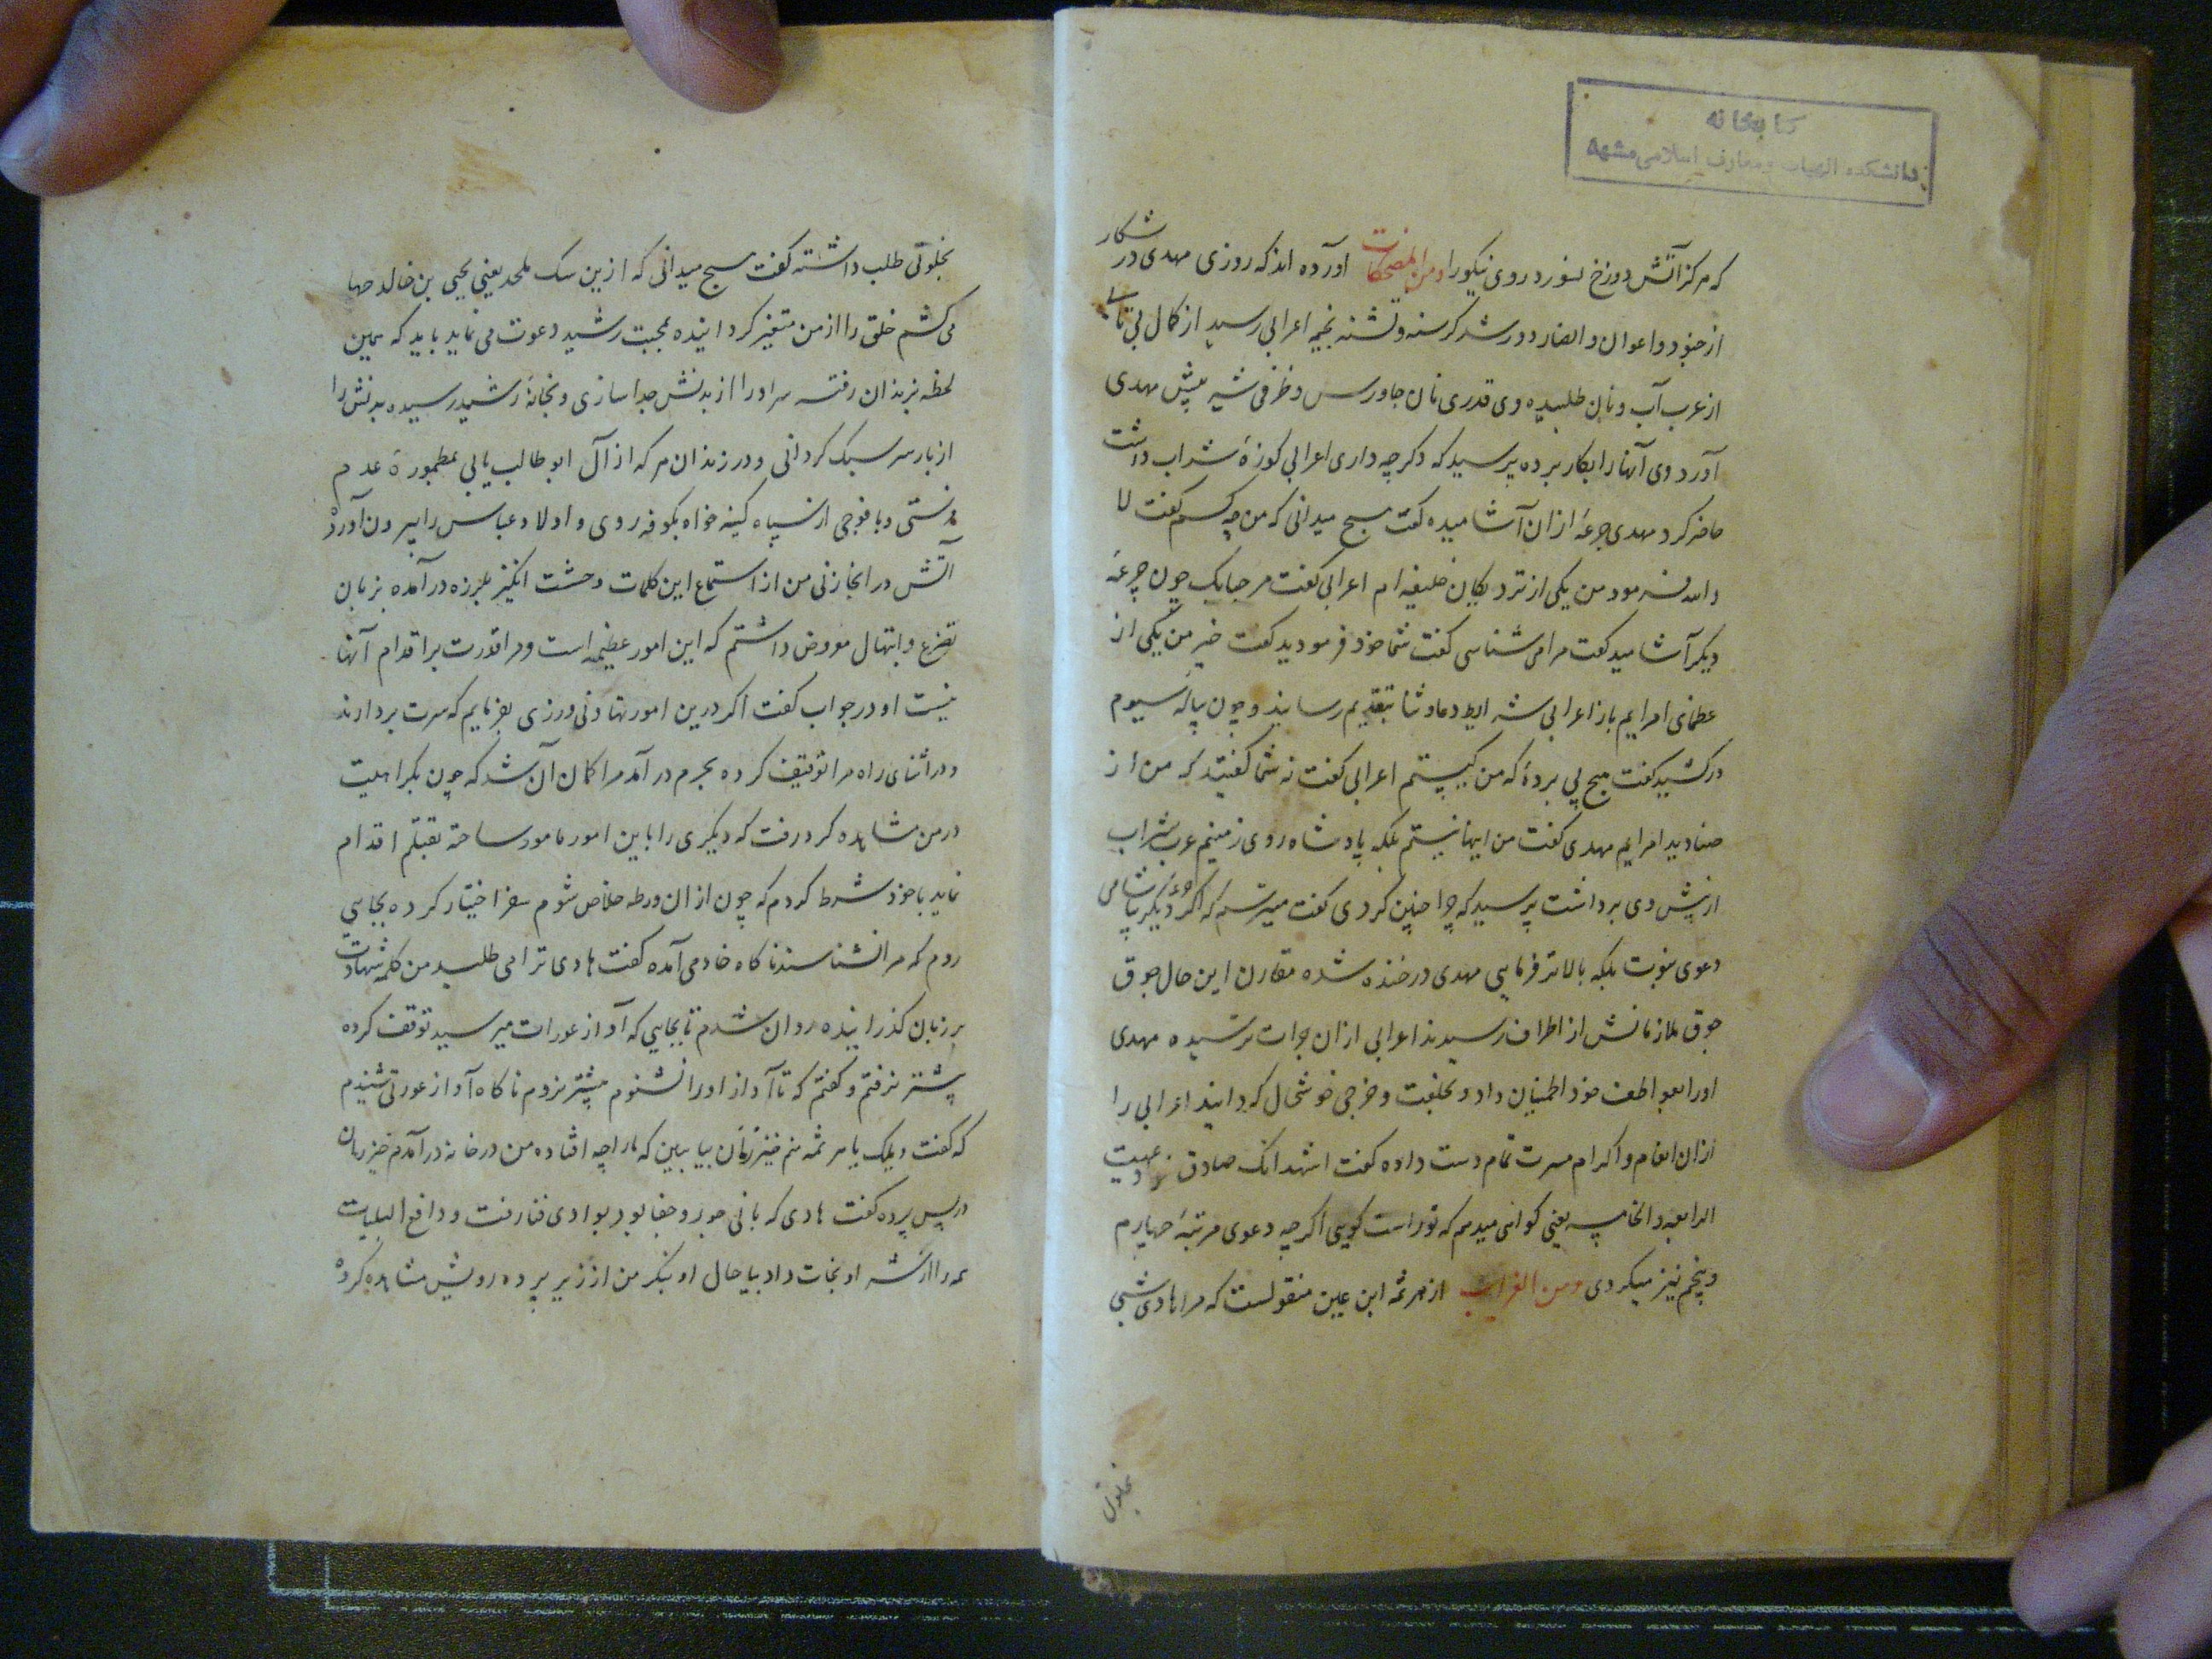 کتابخانه
دانشکده الهیات و معارف اسلامی مشهد
که هرگز آتش دوزخ نسوزد روی نیکو را و من المضحکات آورده اند که روزی مهدی در شکار
از جنود و اعوان و انصار دور شد گرسنه و تشنه بخیمه اعرابی رسید از کمال بی تابی
از عرب آب و نان طلبیده وی قدری نان جاورس و ظرفی شیر پیش مهدی
آورد وی آنها را بکار برده پرسید که دگر چه داری اعرابی کوزهٔ شراب داشت
حاضر کرد مهدی جرعهٔ ازان آشامیده گفت هیچ میدانی که من چه کسم گفت لا
والله فرمود من یکی از نزدیکان خلیفه ام اعرابی گفت مرحبا بک چون جرعهٔ
دیگر آشامید گفت مرا می شناسی گفت شما خود فرمودید گفت خیر من یکی از
عظمای امرایم باز اعرابی شرایط دعا و ثنا بتقدیم رسانید و چون پیاله سیوم
درکشید گفت هیچ پی بردهٔ که من کیستم اعرابی گفت نه شما گفتید که من از
صنادید امرایم مهدی گفت من اینها نیستم بلکه پادشاه روی زمینم عرب شراب
از پیش وی برداشت پرسید که چرا چنین کردی گفت میترسم که اگر جرعهٔ دیگر بیاشامی
دعوی نبوت بلکه بالاتر فرمایی مهدی در خنده شده مقارن این حال جوق
جوق ملازمانش از اطراف رسیدند اعرابی ازان جرات ترسیده مهدی
او را بعواطف خود اطمینان داد و بخلعت و خرجی خوشحال گردانید اعرابی را
ازان انعام و اکرام مسرت تمام دست داده گفت اشهد انک صادق و لو ادعیت
الرابعه و الخامسه یعنی گواهی میدهم که تو راست گویی اگرچه دعوی مرتبهٔ چهارم
و پنجم نیز میکردی و من الغرایب از هرثمه ابن عین منقولست که مرا هادی شبی
بخلوتی
بخلوتی طلب داشته گفت هیچ میدانی که ازین سک ملحد یعنی یحیی بن خالد چها
می کشم خلق را از من متغیر گردانیده بمحبت رشید دعوت می نماید باید که همین
لحظه بزندان رفته سر او را از بدنش جدا سازی و بخانهٔ رشید رسیده بدنش را
از بار سر سبک گردانی و در زندان هر که از آل ابو طالب یابی بمطمورهٔ عدم
فرستی و با فوجی از سپاه کینه خواه بکوفه روی و اولاد عباس را بیرون آورده
آتش در انجا زنی من از استماع این کلمات وحشت انگیز بلرزه درآمده بزبان
تضرع و ابتهال معروض داشتم که این امور عظیمه است و مرا قدرت بر اقدام آنها
نیست او در جواب گفت اگر درین امور تهاونی ورزی بفرمایم که سرت بردارند
و در اثنای راه مرا توقیف کرده بحرم درآمد مرا گمان آن شد که چون کراهیت
در من مشاهده کرد رفت که دیگری را باین امور مامور ساخته بقتلم اقدام
نماید با خود شرط کردم که چون ازان ورطه خلاص شوم سفر اختیار کرده بجایی
روم که مرا نشناسند ناگاه خادمی آمده گفت هادی ترا می طلبد من کلمه شهادت
بر زبان گذرانیده روان شدم تا بجایی که آواز عورات میرسید توقف کرده
پیشتر نرفتم و گفتم که تا آواز او را نشنوم پیشتر نروم ناگاه آواز عورتی شنیدم
که گفت ویلک یا هرثمه منم خیزران بیا ببین که ما را چه افتاده من در خانه درآمدم خیزران
در پس پرده گفت هادی که بانی جور و جفا بود بوادی فنا رفت و دافع البلیات
همه را از شر او نجات داد بیا حال او بنگر من از زیر پرده رویش مشاهده کرده